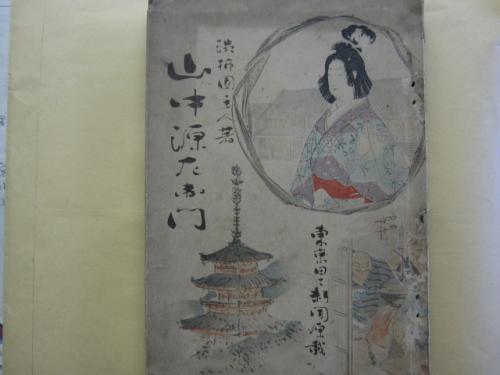 渋柿園主人著
山中源左衛門
東京日々新聞原載